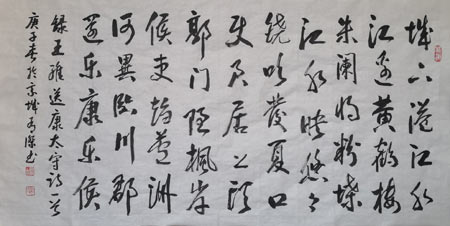 城下沧江水
江边黄鹤楼
朱阑将粉堞
江水映悠々
铙吹發夏口
使君居上头
郭门隐枫岸
候吏趋芦洲
何異臨川郡
还劳康乐侯
録王维送康太守诗一首
庚子春於京城